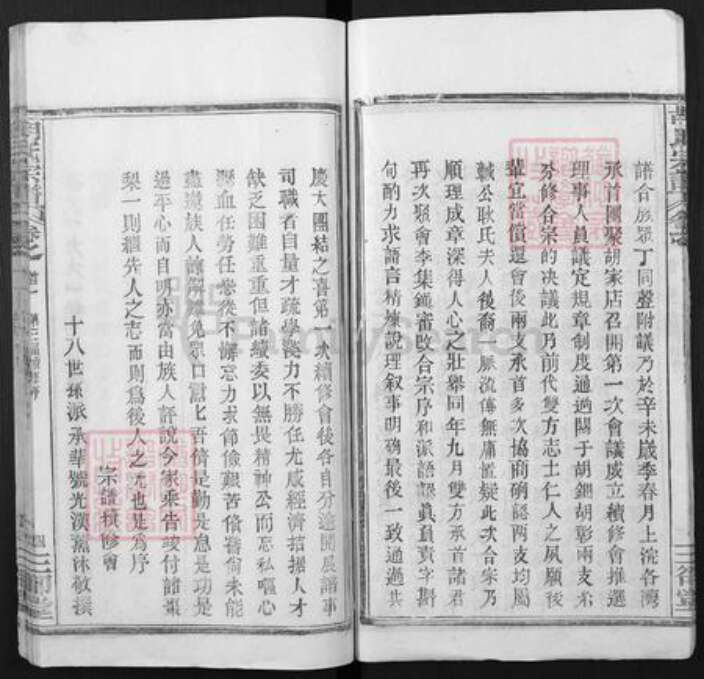 譜合族眾丁同聲附議乃於辛未歲季春月上浣各灣
承首團聚胡家店召開第一次會議成立續修會推選
理事人員議定規章制度通過關于胡鈿胡彰兩支系
分修合宗的决議此乃前代雙方志士仁人之夙願後
輩宜當償還會後兩支承首多次協商确認兩支均屬
誠公耿氏夫人後裔一脈流傳無庸置疑此次合宗乃
順理成章深得人心之壯舉同年九月雙方承首諸君
再次聚會李集鎮審改合宗序和派語認真負責字斟
句酌力求語言精煉說理叙事明确最後一致通過共
慶大團結之喜第一次續修會後各自分途開展譜事
司職者自量才疏學淺力不勝任尤感經濟拮据人才
缺乏困難重重但諸績委以無畏精神公而忘私嘔心
瀝血任勞任怨從不懈忘力求節儉艱苦備嘗尚未能
盡邀族人諒解
過平心而自明亦當由族人評說今家乘告竣付諸棗
梨一則繼先人之志而則為後人之
宗譜續修會
十八世孫派承輩號光漢薰沐敬撰